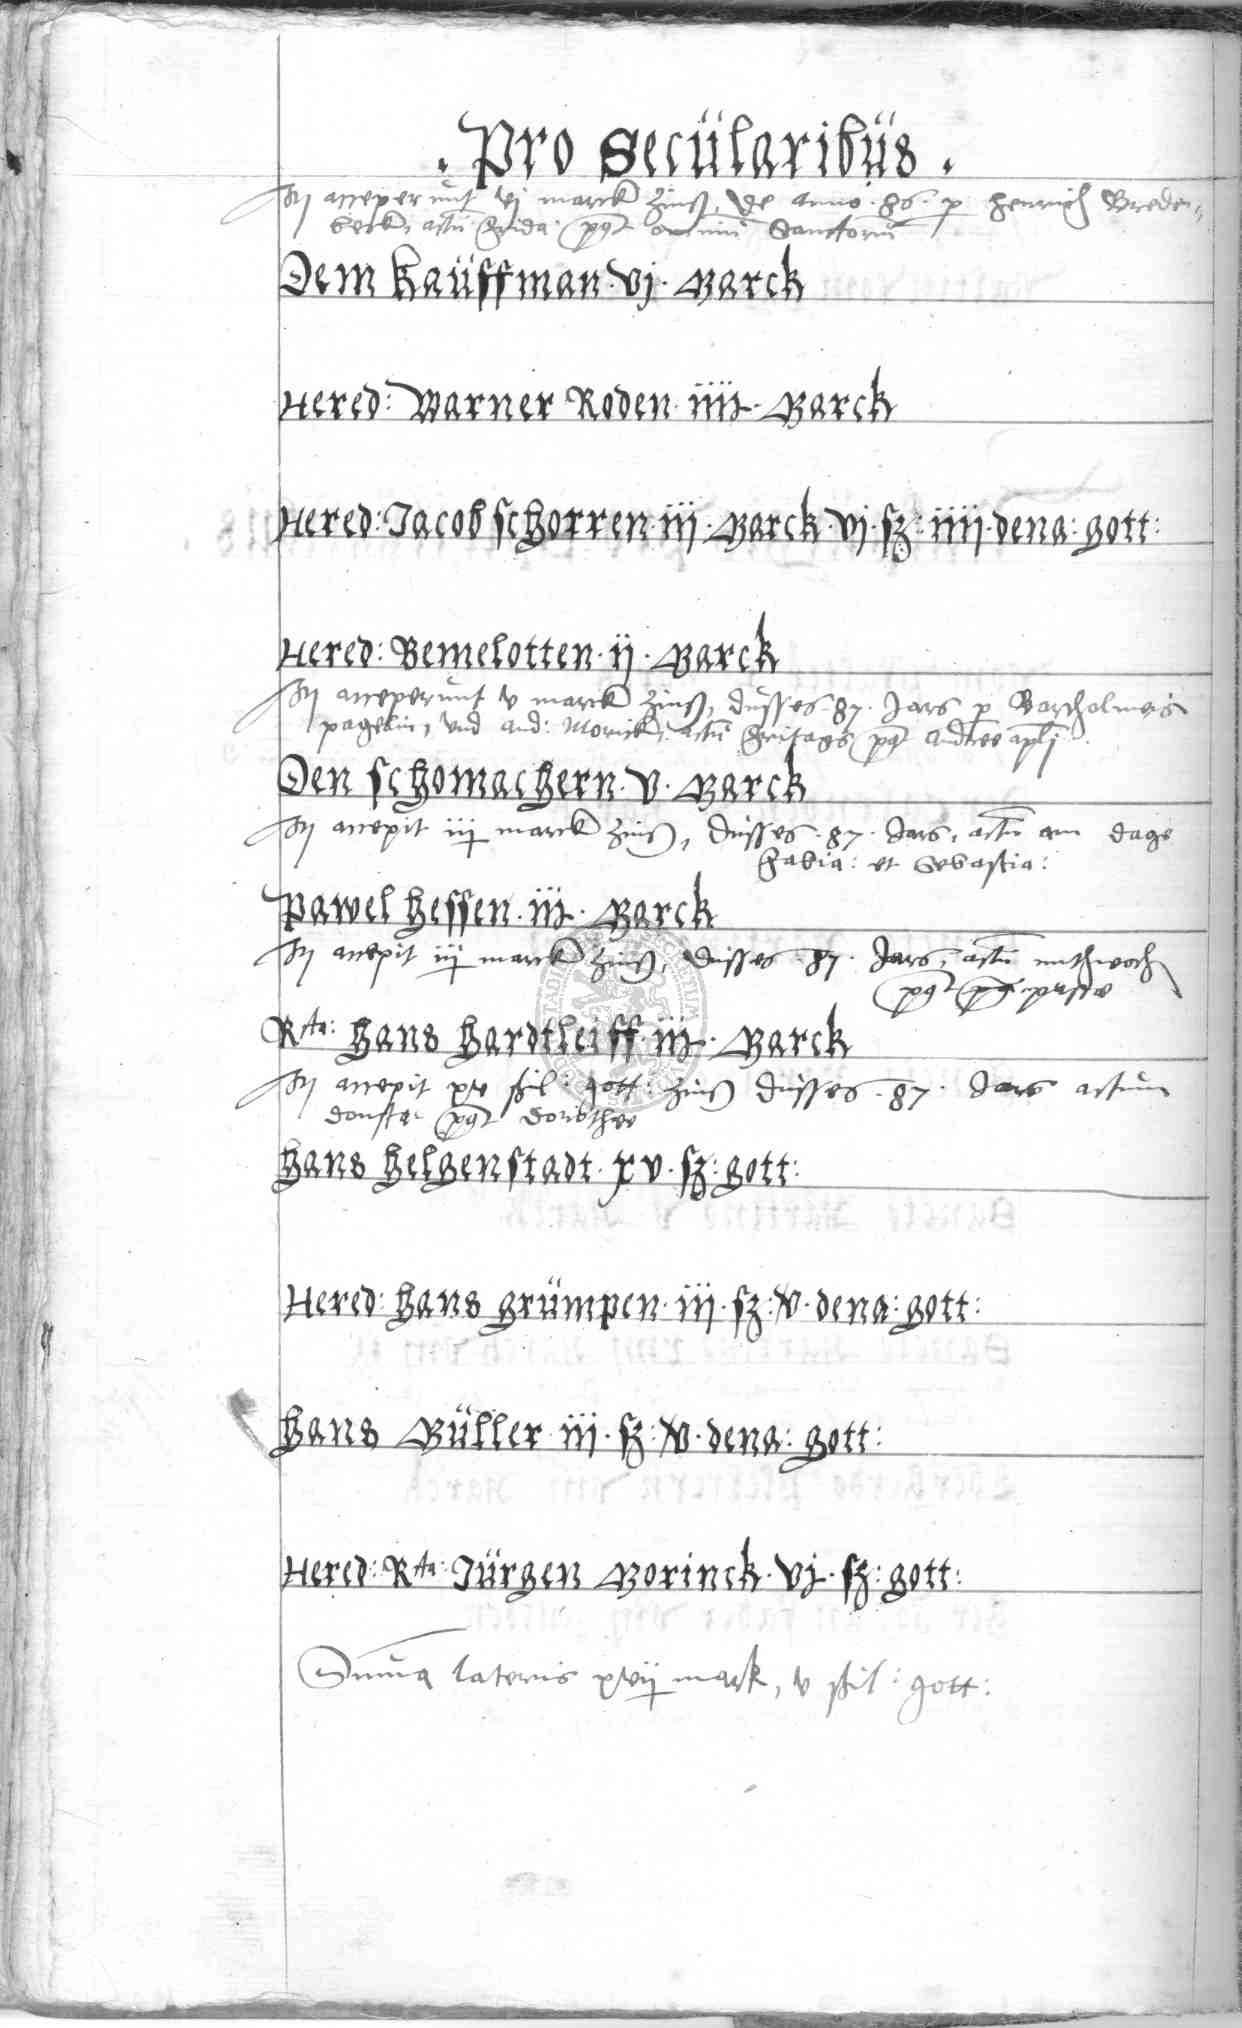 . Pro Secülaribüs .
Hij acceperunt vj marck zinß, de anno . 86 . p Henrich Breden„
beck, actu frida: post omniu Sanctoru
Dem Kaüffman . vj . Marck
Hered: Warner Roden . iiij . Marck
Hered: Jacob schorren . iij . Marck . vj . sz: iiij . dena: gott:
Hered: Bemelotten . ij . Marck
Hij acceperunt v marck zinß, düsses . 87 . Jars p Bartholmeis
pagelin, und and: Morick, actu fritags post Andree apli .
Den schomachern . v . Marck
Hij accepit iij marck zinß, düsses . 87 . Jars, actu am dage
Fabia: et Sebastia:
Pawel hessen . iij . Marck
Hij accepit iij marck zinß, düsses . 87 . Jars, actu mithwoch
post pasce
Rta: hans hardtleiff . iij . Marck
Hij accepit xv ßil: gott: zinß düsses . 87 . Jars actum
donsta: post Dorothee
hans helgenstadt . xv . sz: gott:
Hered: hans grümpen . iij . sz: v . dena: gott:
hans Müller iij . sz: v . dena: gott:
Hered: Rta: Jürgen Morinck . vj . sz: gott:
Suma lateris xxvij mark, v ßil: gott: